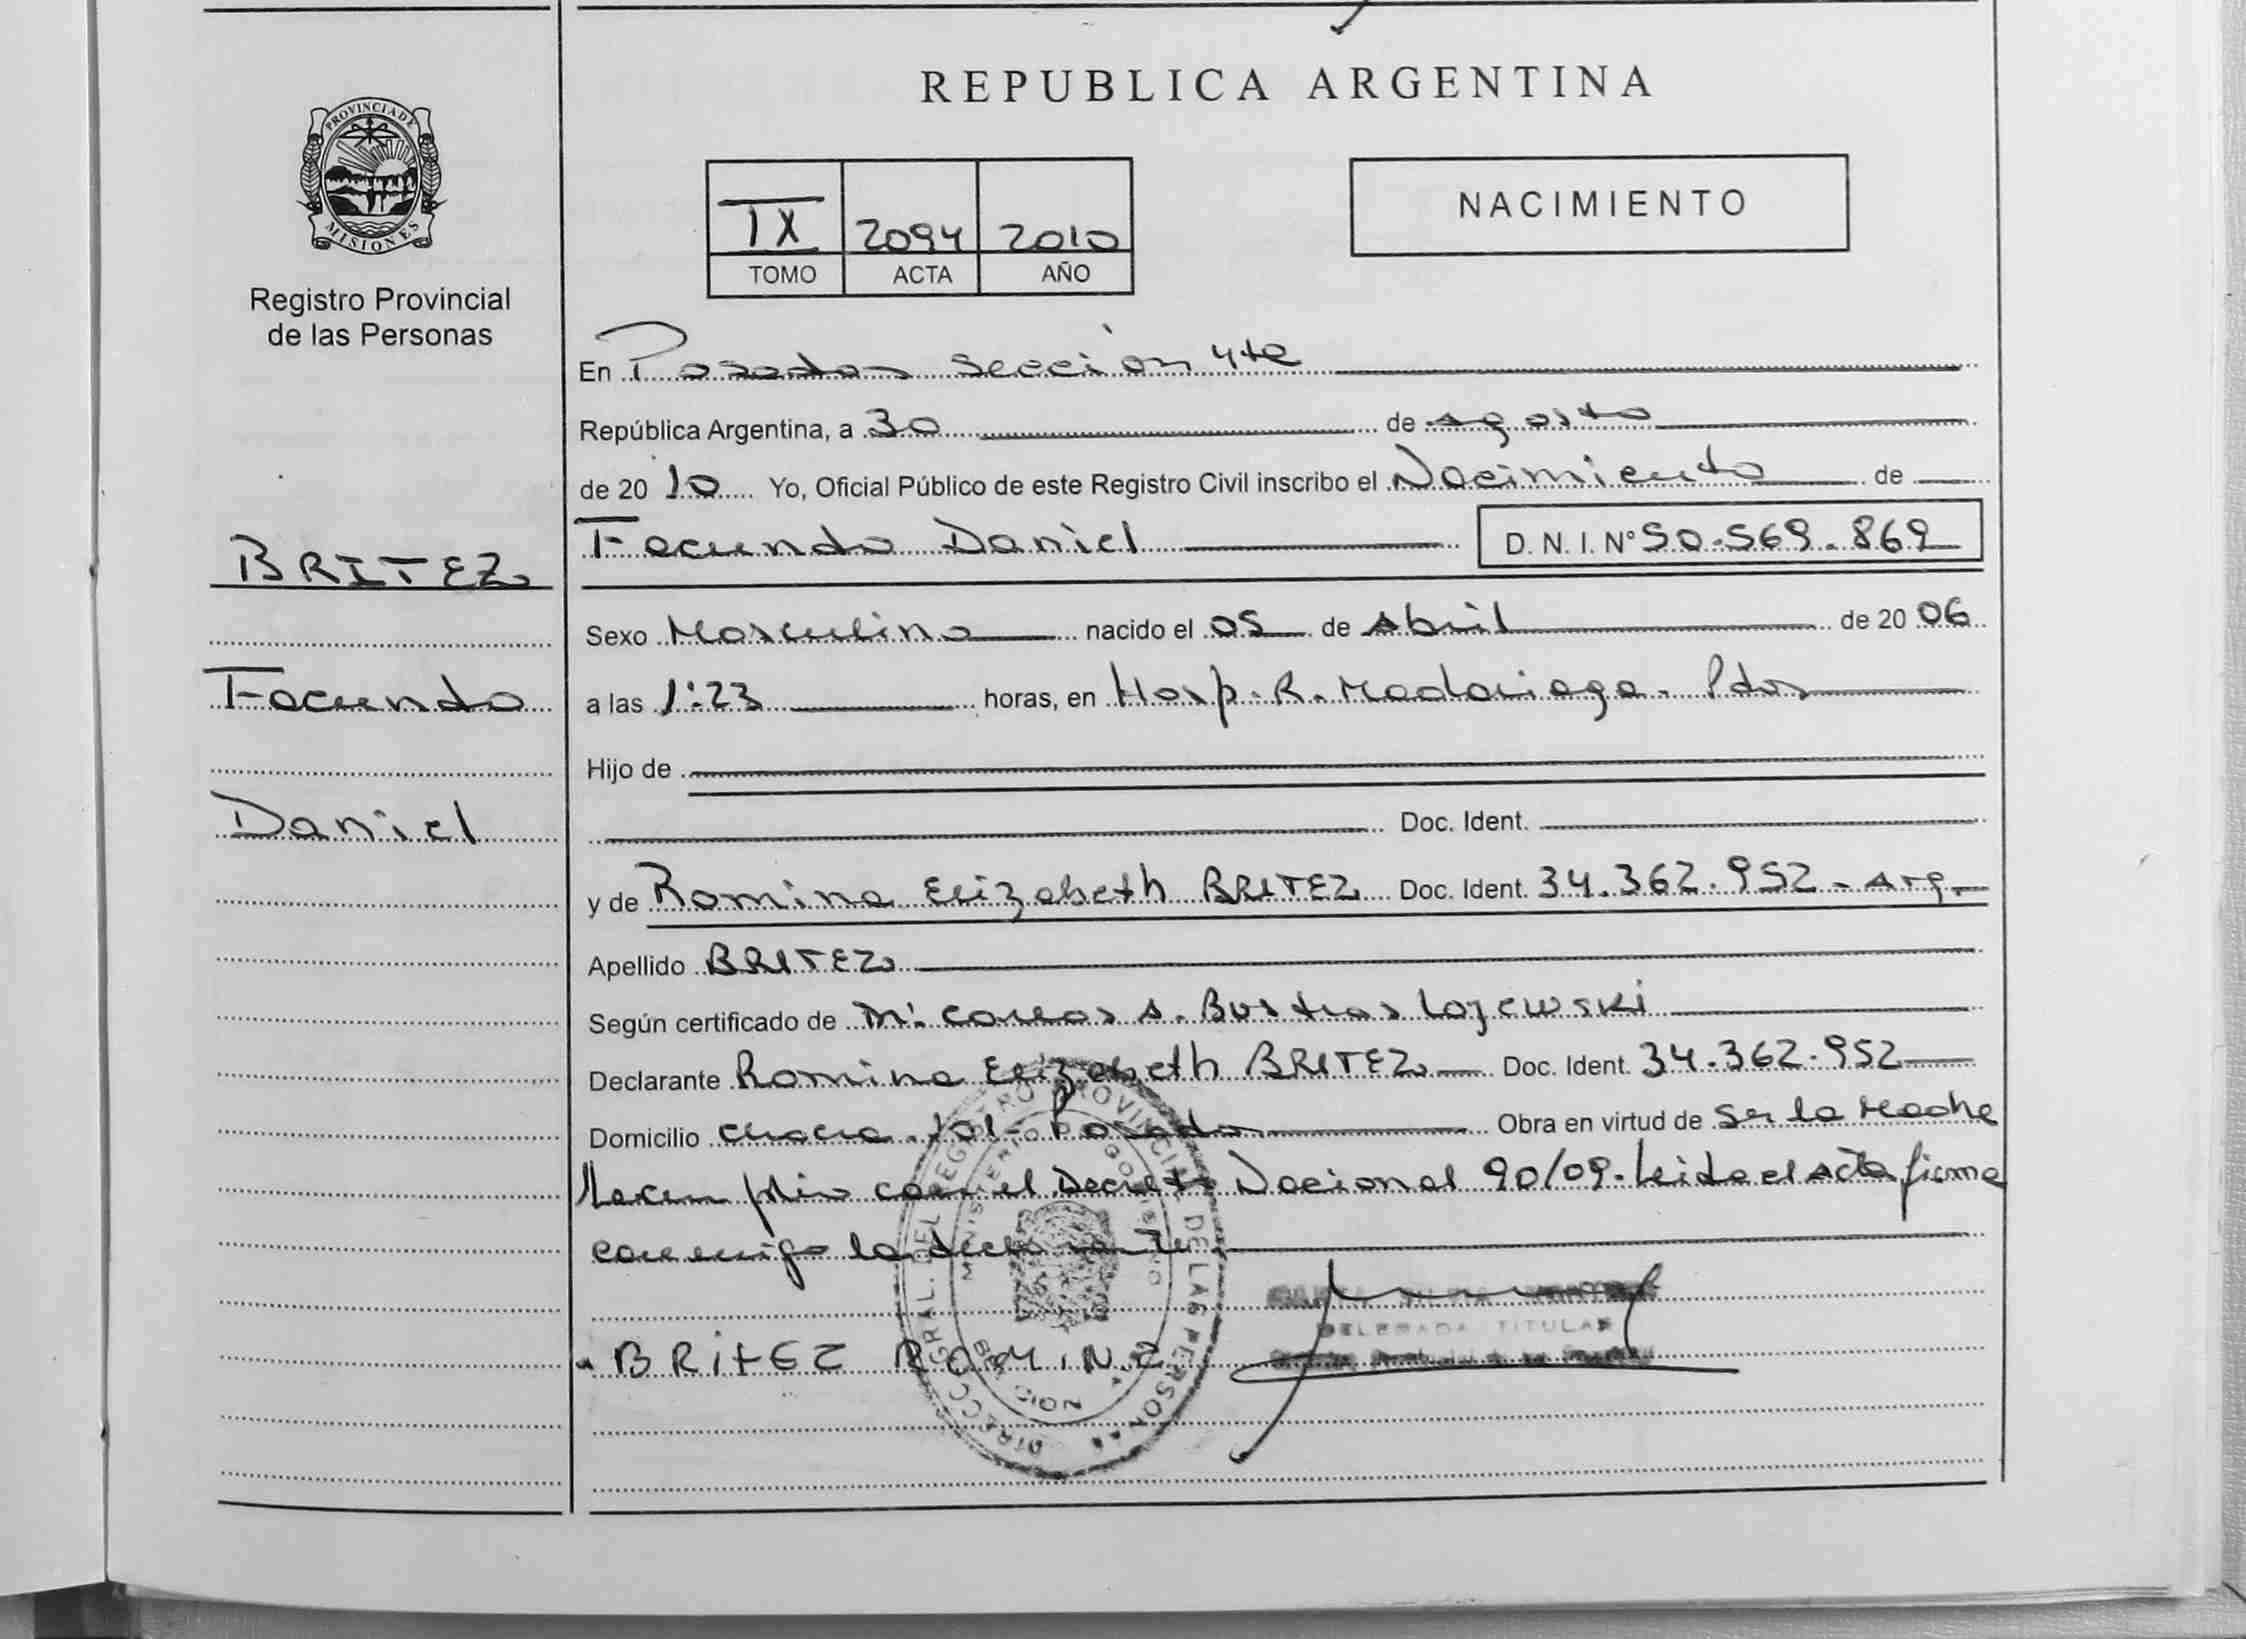 REPUBLICA ARGENTINA
PROVINCIA DE
MISIONES
Registro Provincial
de las Personas
IX 2094 2010
TOMO ACTA AÑO
NACIMIENTO
En Posadas Sección 4ta
República Argentina, a 30 de agosto
de 2010 Yo, Oficial Público de este Registro Civil inscribo el Nacimiento de
Facundo Daniel D. N. I. Nº 50.569.869
BRITEZ
Facundo
Daniel
Sexo Masculino nacido el 05 de Abril de 2006
a las 1:23 horas, en Hosp. R. Madariaga. Pdas
Hijo de
Doc. Ident.
y de Romina Elizabeth BRITEZ Doc. Ident. 34.362.952 - Arg.
Apellido BRITEZ
Según certificado de Carlos A. Bustros Lojewski
Declarante Romina Elizabeth BRITEZ Doc. Ident. 34.362.952
Domicilio chacra 101 - Posadas Obra en virtud de Ser la Madre
con el Decreto Nacional 90/09. Leida el Acta firma
conmigo la declarante
DELEGADA TITULAR
BRITEZ ROMINA
DIRECC. GRAL. DEL REGISTRO PROVINCIAL DE LAS PERSONAS
MINISTERIO DE GOBIERNO